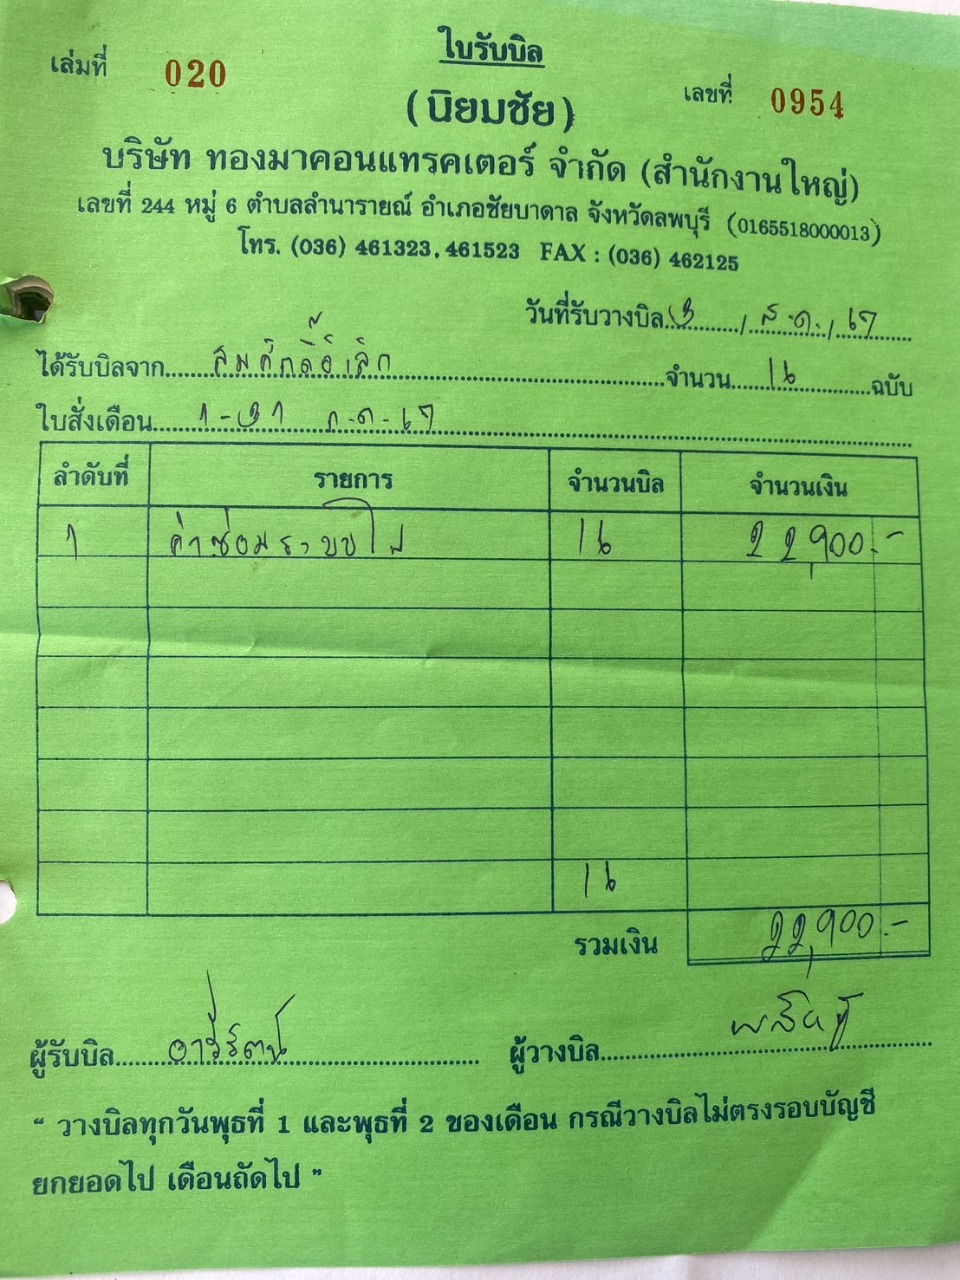 ใบรับบิล
เล่มที่ 020 เลขที่ 0954
(นิยมชัย)
บริษัท ทองมาคอนแทรคเตอร์ จำกัด (สำนักงานใหญ่)
เลขที่ 244 หมู่ 6 ตำบลลำนารายณ์ อำเภอชัยบาดาล จังหวัดลพบุรี (0165518000013)
โทร. (036) 461323, 461523 FAX : (036) 462125
วันที่รับวางบิล 3 / ส.ค. / 67
ได้รับบิลจาก สมศักดิ์อีเล็ก จำนวน 16 ฉบับ
ใบสั่งเดือน 1-31 ก.ค.-67
ลำดับที่ รายการ จำนวนบิล จำนวนเงิน
1 ค่าซ่อมระบบไฟ 16 22,900.-
16
รวมเงิน 22,900.-
ผู้รับบิล อารีรัตน์ ผู้วางบิล
" วางบิลทุกวันพุธที่ 1 และพุธที่ 2 ของเดือน กรณีวางบิลไม่ตรงรอบบัญชี
ยกยอดไป เดือนถัดไป "